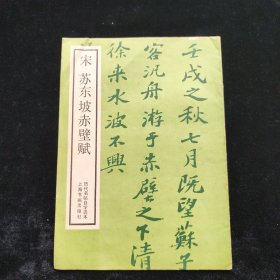 壬戌之秋七月既望蘇子
客汎舟游于赤壁之下清
徐来水波不興
宋 苏东坡赤壁赋
历代名帖自学选本
上海书画出版社